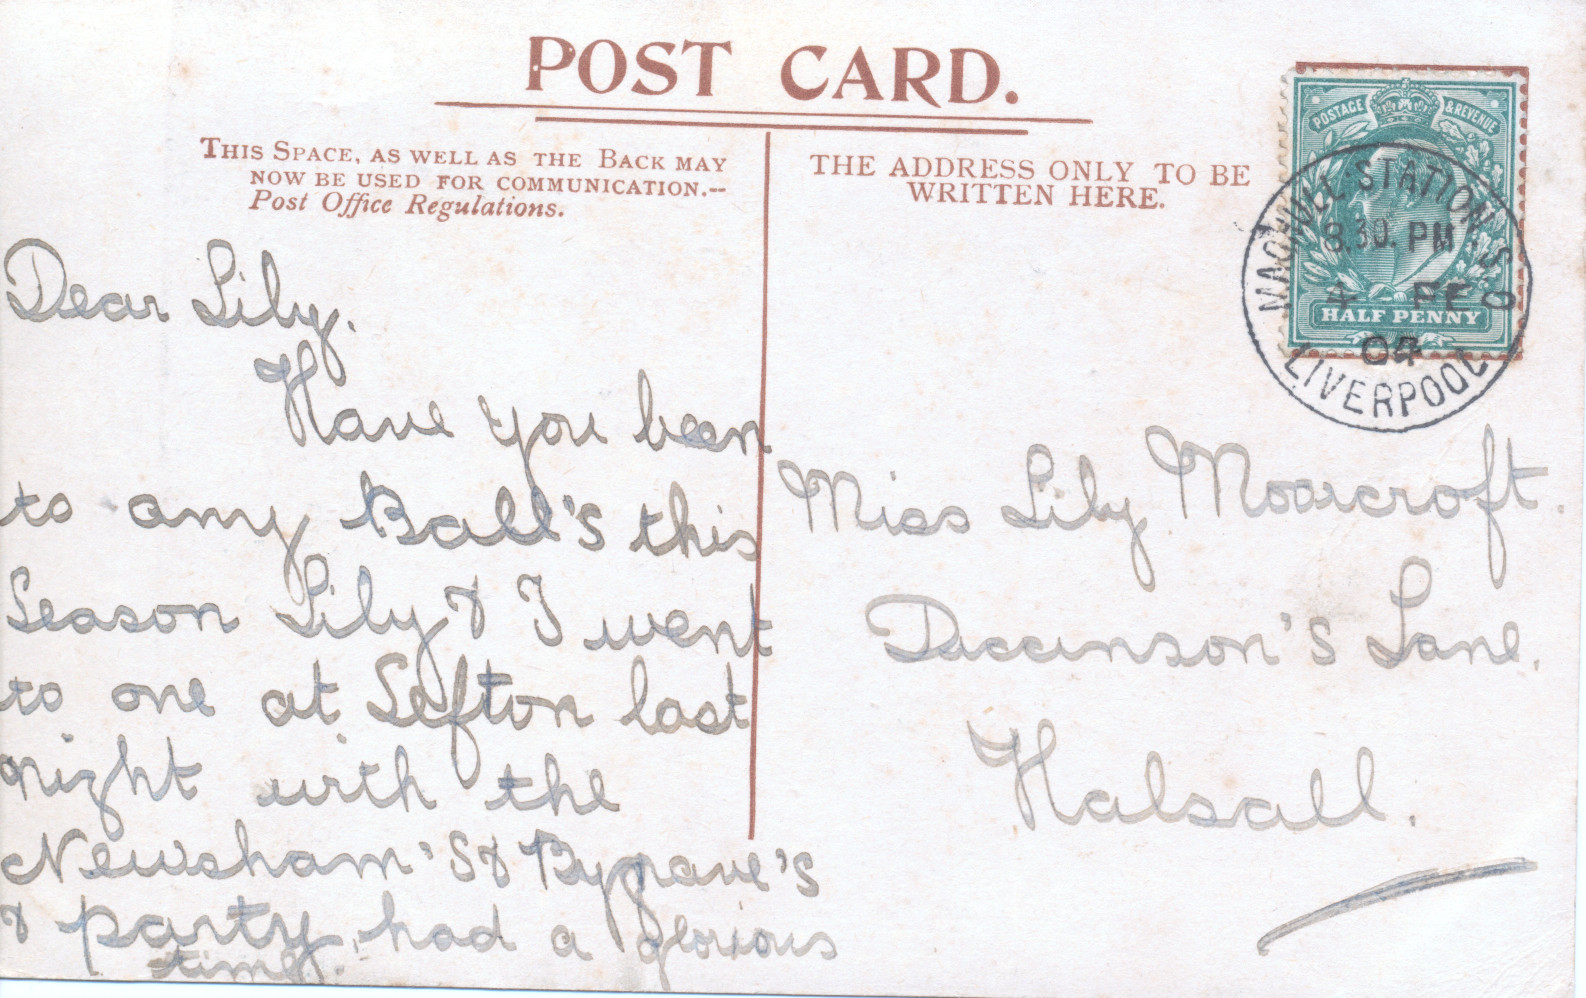 POST CARD.
THIS SPACE, AS WELL AS THE BACK MAY
NOW BE USED FOR COMMUNICATION.--
Post Office Regulations.
Dear Lily.
Have you been
to any Ball's this
Season Lily & I went
to one at Sefton last
night with the
Newsham's & Bygrave's
& party, had a glorious
time.
THE ADDRESS ONLY TO BE
WRITTEN HERE.
POSTAGE & REVENUE
HALF PENNY
MAGHULL STATION S.O
8.30. PM
4 FE
04
LIVERPOOL
Miss Lily Moorcroft.
Diccinson's Lane.
Halsall.